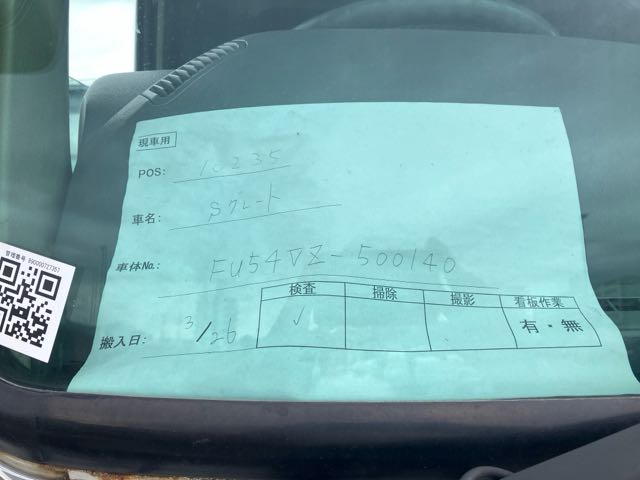 現車用
POS: 10235
車名: Sグレート
車体No.: FU54VZ-500140
検査 掃除 撮影 看板作業
搬入日: 3/26 ✓ 有・無
管理番号 990000727357